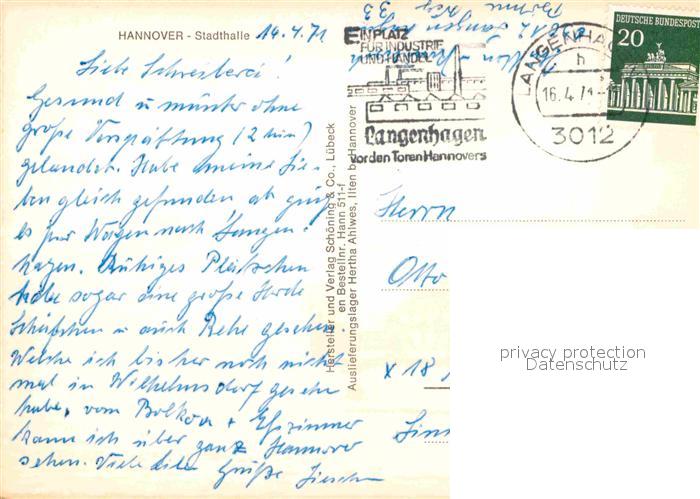 HANNOVER - Stadthalle 14.4.71
Liebe Schreiberei!
Gesund u munter ohne
große Verspätung (2 min)
gelandet. Habe meine Lie-
ben gleich gefunden ab
es per Wagen nach Langen-
hagen. Ruhiges Plätzchen
habe sogar eine große Herde
Schäfchen u auch Rehe gesehen.
Welche ich bisher noch nicht
mal in Wilhelmsdorf gesehen
habe, vom Balkon + Eßzimmer
kann ich über ganz Hannover
sehen. Viele liebe Grüße
Hersteller und Verlag Schöning & Co., Lübeck
en Bestellnr. Hann 511-f
Auslieferungslager Hertha Ahlwes, Ilten b. Hannover
EIN PLATZ
FÜR INDUSTRIE
UND HANDEL
Langenhagen
vor den Toren Hannovers
LANGENHAG
h
16.4.71
3012
DEUTSCHE BUNDESPOST
20
Herrn
Otto
x 18
privacy protection
Datenschutz